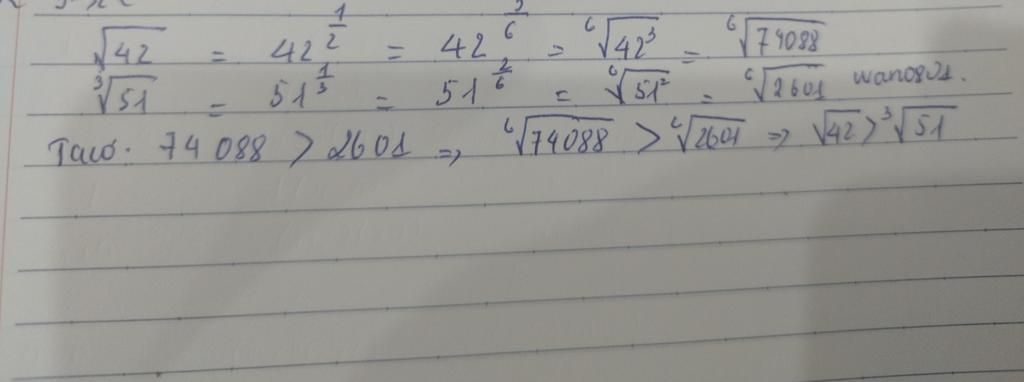 √42 = 42^(1/2) = 42^(3/6) = ⁶√42³ = ⁶√74088
³√51 = 51^(1/3) = 51^(2/6) = ⁶√51² = ⁶√2601 wano801.
Taco. 74088 > 2601 => ⁶√74088 > ⁶√2601 => √42 > ³√51